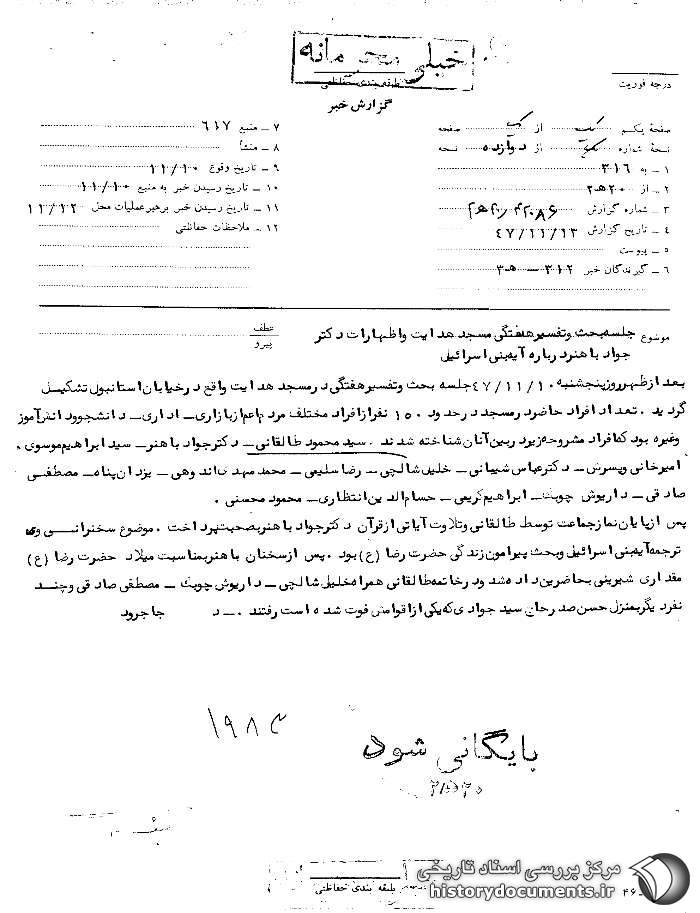 خیلی محرمانه
طبقه بندی حفاظتی
درجه فوریت
گزارش خبر
صفحهٔ یکم یک از یک صفحه
نسخهٔ شماره یک از دوازده نسخه
۱ – به ۳۱۶
۲ – از ۲۰ﻫ۲
۳ – شماره گزارش
۴ – تاریخ گزارش ۴۷/۱۱/۱۳
۵ – پیوست
۶ – گیرندگان خبر ۳۱۲ –
۷ – منبع ۶۱۷
۸ – منشأ
۹ – تاریخ وقوع ۱۱/۱۰
۱۰ – تاریخ رسیدن خبر به منبع ۱۱/۱۰
۱۱ – تاریخ رسیدن خبر برهبر عملیات محل ۱۱/۱۲
۱۲ – ملاحظات حفاظتی
موضوع جلسه بحث وتفسیر هفتگی مسجد هدایت واظهارات دکتر
جواد باهنر درباره آیه بنی اسرائیل
عطف
پیرو
بعد از ظهر روز پنجشنبه ۴۷/۱۱/۱۰ جلسه بحث وتفسیر هفتگی در مسجد هدایت واقع در خیابان استانبول تشکیل
گردید . تعداد افراد حاضر در مسجد در حدود ۱۵۰ نفر از افراد مختلف مردم اعم از بازاری – اداری – دانشجو و دانش آموز
وغیره بود که افراد مشروحه زیر دربین آنان شناخته شدند . سید محمود طالقانی – دکتر جواد باهنر – سید ابراهیم موسوی .
امیرخانی وپسرش – دکتر عباس شیبانی – خلیل شالچی – رضا سلیمی – محمد مهدی اند وهی – یزدان پناه – مصطفی
صادقی – داریوش چوبک – ابراهیم کریمی – حسام الدین انتظاری – محمود محسنی .
پس از پایان نماز جماعت توسط طالقانی وتلاوت آیاتی از قرآن دکتر جواد باهنر بصحبت پرداخت . موضوع سخنرانی وی
ترجمه آیه بنی اسرائیل وبحث پیرامون زندگی حضرت رضا (ع) بود . پس از سخنان باهنر بمناسبت میلاد حضرت رضا (ع)
مقداری شیرینی بحاضرین داده شد و در خاتمه طالقانی همراه خلیل شالچی – داریوش چوبک – مصطفی صادقی وچند
نفر دیگر بمنزل حسن صدر حاج سید جوادی که یکی از اقوامش فوت شده است رفتند . – د جاجرود
۱۹۸۳
بایگانی شود
طبقه بندی حفاظتی
مرکز بررسی اسناد تاریخی
historydocuments.ir